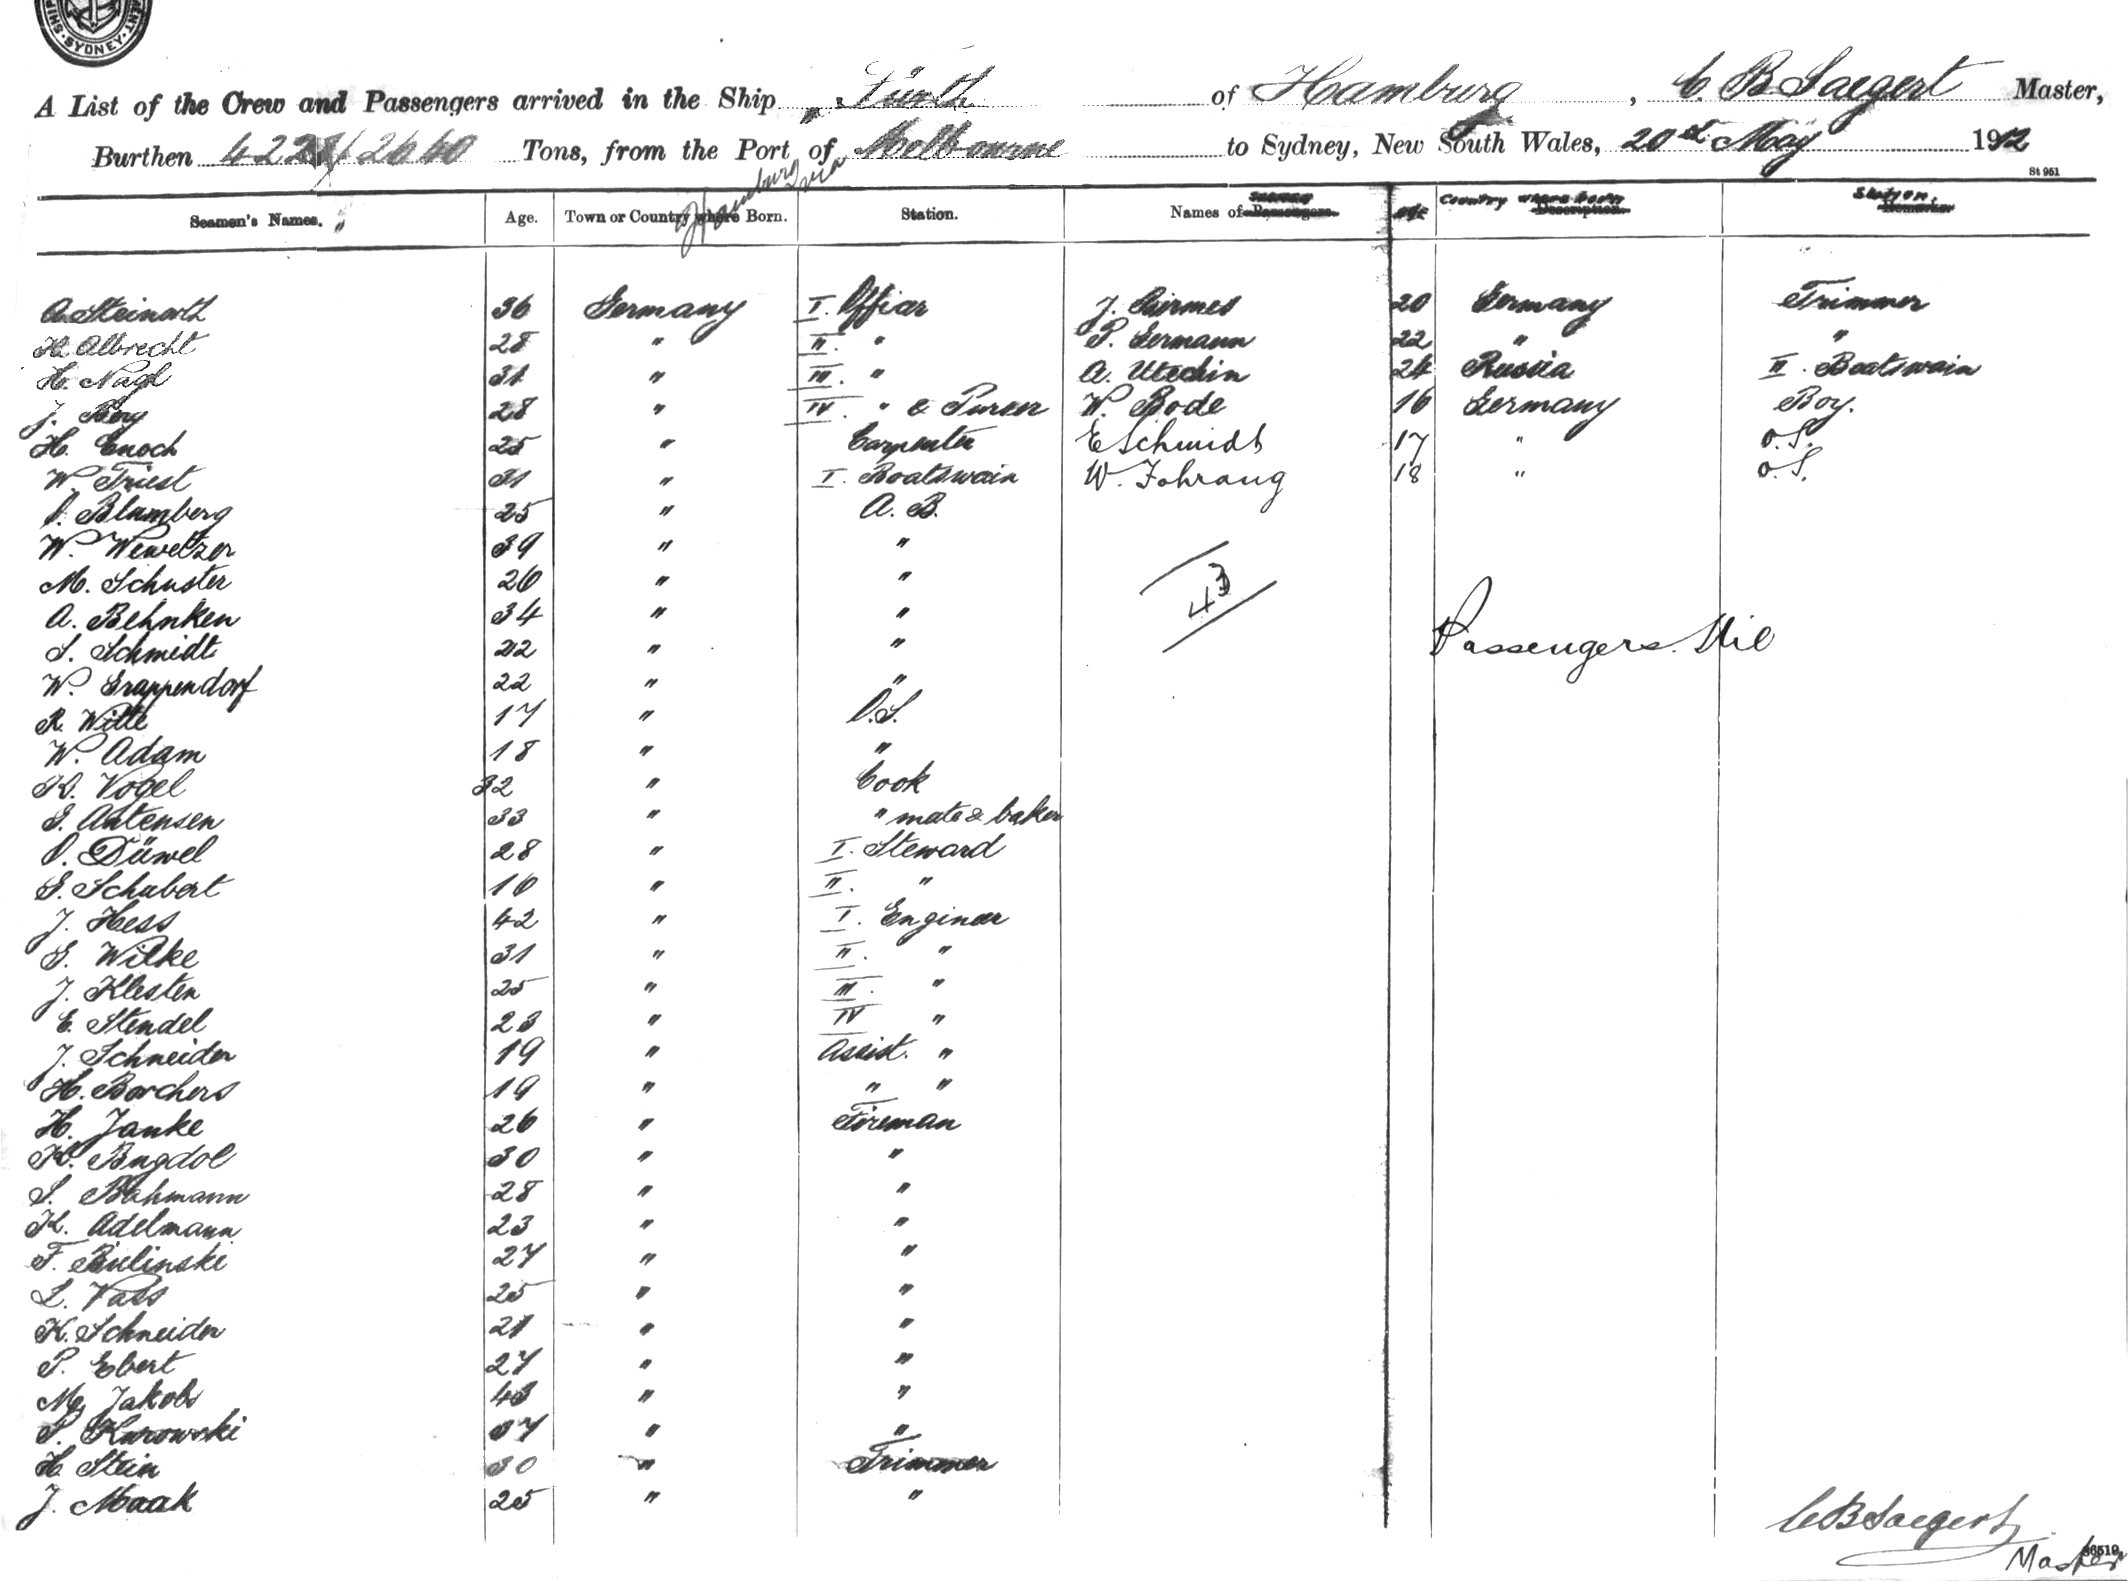 SYDNEY
A List of the Crew and Passengers arrived in the Ship "Fürth" of Hamburg, C. B. Saegert Master,
Burthen 4229/2640 Tons, from the Port of Hamburg via Melbourne to Sydney, New South Wales, 20st May 1912
St 951
Seamen's Names. Age. Town or Country where Born. Station. Names of Seamen Age Country where born Station.
A. Steinorth 36 Germany I. Officer J. 20 Germany Trimmer
H. Albrecht 28 " II. " P. Germann 22 " "
H. Nagel 31 " III. " A. Utechin 24 Russia II. Boatswain
J. Berg 28 " IV. " & Purser W. Bode 16 Germany Boy.
H. Enoch 25 " Carpenter E Schmidt 17 " O.S.
W. Triest 31 " I. Boatswain W. Fohrang 18 " O.S.
O. Blumberg 25 " A. B.
W. Wewetzer 39 " "
M. Schuster 26 " "
A. Behnken 34 " "
S. Schmidt 22 " "
W. Grappendorf 22 " "
R. Witte 17 " O.S.
W. Adam 18 " "
K. Vogel 32 " Cook
G. Antensen 33 " " mate & baker
O. Düwel 28 " I. Steward
G. Schubert 16 " II. "
J. Hess 42 " I. Engineer
G. Wilke 31 " II. "
J. Klesten 25 " III. "
E. Stendel 23 " IV "
J. Schneider 19 " Assist. "
H. Borchers 19 " " "
H. Janke 26 " Fireman
K. Bugdol 30 " "
S. Bahmann 28 " "
K. Adelmann 23 " "
F. Bielinski 27 " "
L. Vass 25 " "
K. Schneider 21 " "
P. Ebert 27 " "
M. Jakobs 43 " "
P. Kurowski 37 " "
H Stein 30 " Trimmer
J. Maak 25 " "
43
Passengers. Nil
C B Saegert
Master